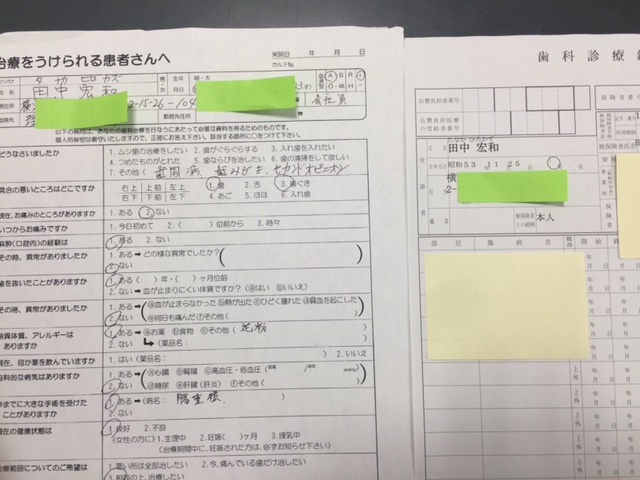 治療をうけられる患者さんへ
来院日 年 月 日
カルテNo.
田中 宏和
男
女
生年
明・大
血液型
A B R
O AB H
-15-26-104
会社員
勤務先住所
以下の質問は、あなたの歯科治療を行なうにあたって必要な資料を得るためのものです。
個人的秘密は厳守いたしますので、正確にお答え下さい。該当する箇所に○をつけて下さい。
どうなさいましたか
1. ムシ歯の治療をしたい 2. 歯がぐらぐらする 3. 入れ歯を入れたい
4. つめたものがとれた 5. 歯ならびを治したい 6. 歯の清掃をして欲しい
7. その他( 歯周病、歯みがき、セカンドオピニオン
具合の悪いところはどこですか
右上 上前 左上
右下 下前 左下
1. 歯 2. 舌 3. 歯ぐき
4. あご 5. ほほ 6. 入れ歯
現在、お痛みのところがありますか
1. ある 2. ない
いつからお痛みですか
1. 今日初めて 2. ( )位前から 3. 時々
麻酔(口腔内)の経験は
1. ある 2. ない
その時、異常がありましたか
1. ある➡どの様な異常でしたか?( )
2. ない
歯を抜いたことがありますか
1. ある➡( )年・( )ヶ月位前
2. ない➡血が止まりにくい体質ですか?(ⓐはい ⓑいいえ)
その時、異常がありましたか
1. ある➡(ⓐ血が止まらなかった ⓑ熱が出た ⓒひどく腫れた ⓓ貧血を起こした
2. ない (ⓔ何日も痛んだ ⓕその他( )
特異体質、アレルギーは
ありますか
1. ある➡ⓐお薬 ⓑ食物 ⓒその他( 花粉 )
2. ない (薬品名: )
現在、何か薬を飲んでいますか
1. はい(薬品名: ) 2. いいえ
内科的な病気はありますか
1. ある➡(ⓐ心臓 ⓑ腎臓 ⓒ高血圧・低血圧(
2. ない (ⓓ糖尿 ⓔ肝臓(肝炎) ⓕその他( )
今までに大きな手術を受けた
ことがありますか
1. ある➡(病名: )
2. ない
現在の健康状態は
1. 良好 2. 不良
(女性の方に) 1. 生理中 2. 妊娠( )ヶ月 3. 授乳中
(治療期間中に、妊娠された方は、必ずお知らせ下さい)
治療範囲についてのご希望は
1. 悪い所は全部治したい 2. 今、痛んでいる歯だけ治したい
3. 相談の上、治療したい
歯科診療録
公費負担者番号
公費負担医療
の受給者番号
保険者番号
たなか ひろかず
田中 宏和
昭和53 11 25
被保険者氏名
横
2-
被保険者
との続柄
本人
受診者
事業所
保険者
部位 傷病名 職務 開始
年
月 日
上・外